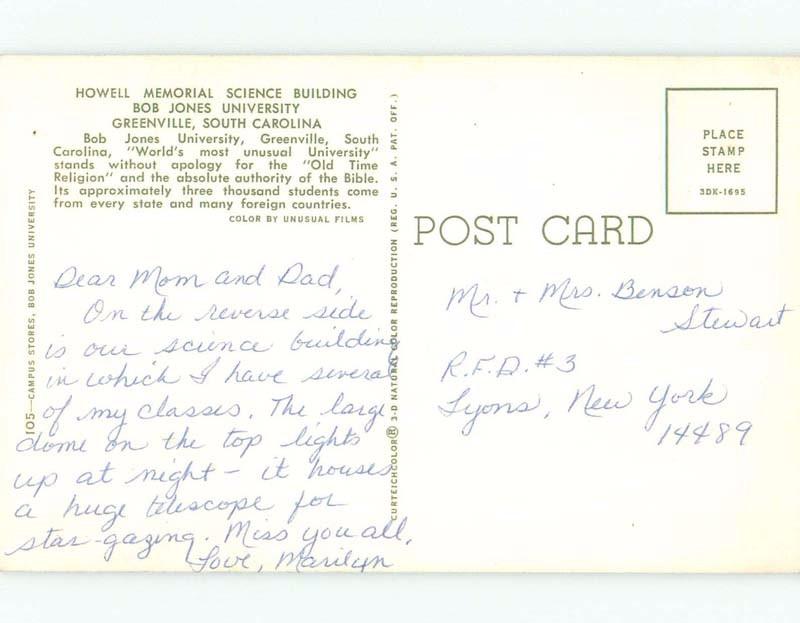 HOWELL MEMORIAL SCIENCE BUILDING
BOB JONES UNIVERSITY
GREENVILLE, SOUTH CAROLINA
Bob Jones University, Greenville, South
Carolina, "World's most unusual University"
stands without apology for the "Old Time
Religion" and the absolute authority of the Bible.
Its approximately three thousand students come
from every state and many foreign countries.
COLOR BY UNUSUAL FILMS
105—CAMPUS STORES, BOB JONES UNIVERSITY
Dear Mom and Dad,
On the reverse side
is our science building
in which I have several
of my classes. The large
dome on the top lights
up at night - it houses
a huge telescope for
star-gazing. Miss you all,
Love, Marilyn
CURTEICHCOLOR® 3-D NATURAL COLOR REPRODUCTION (REG. U. S. A. PAT. OFF.)
POST CARD
PLACE
STAMP
HERE
3DK-1695
Mr. + Mrs. Benson
Stewart
R.F.D. #3
Lyons, New York
14489